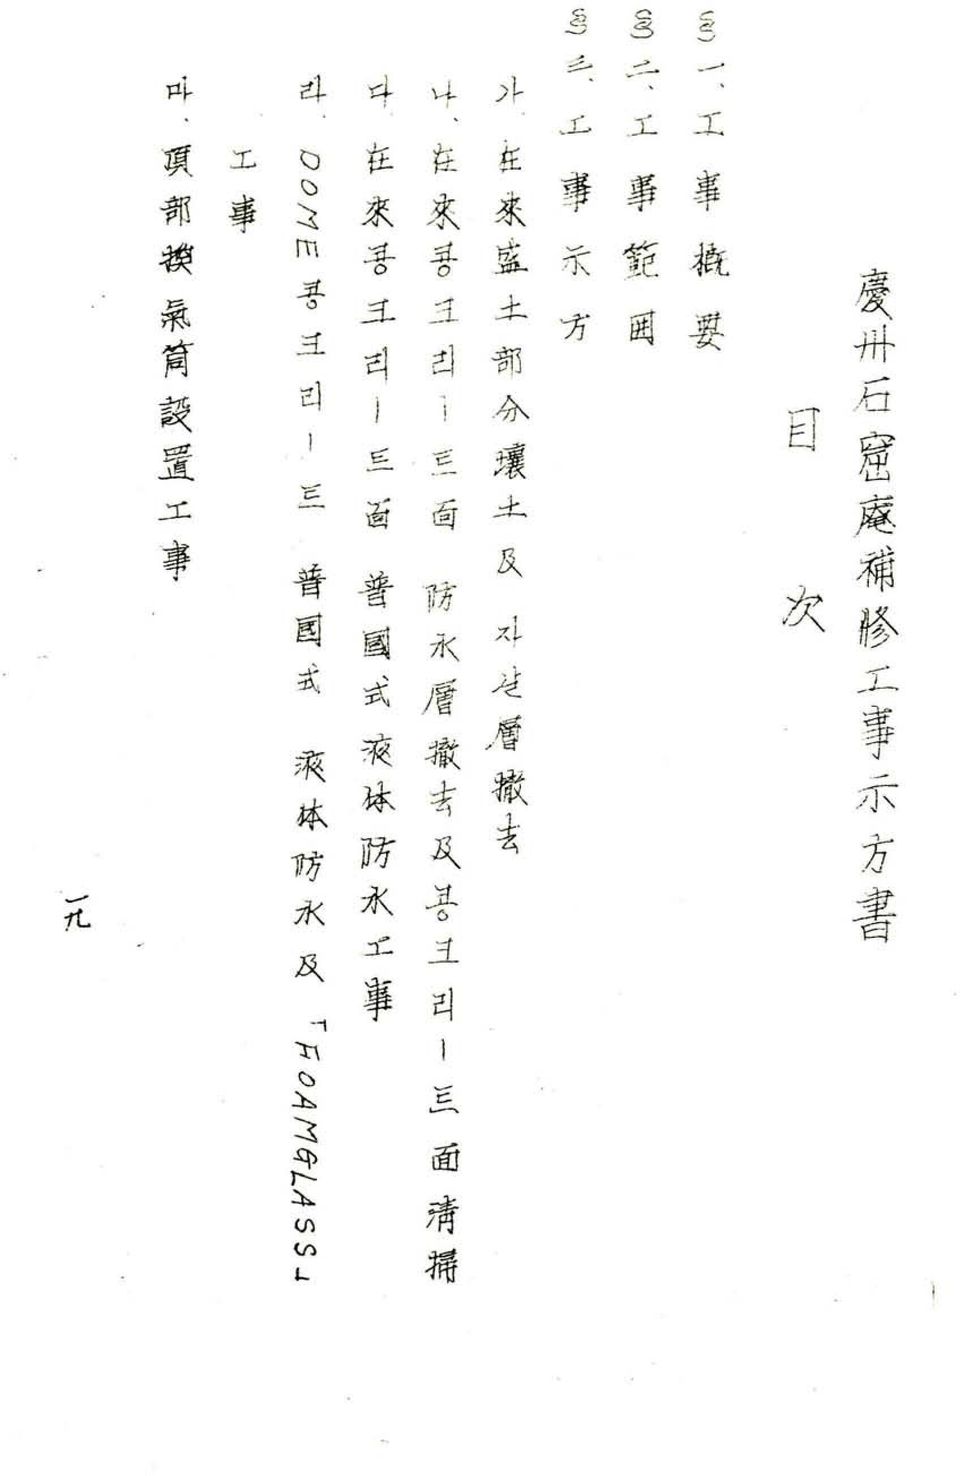 慶州石窟庵補修工事示方書
目次
§一、工事槪要
§二、工事範囲
§三、工事示方
가、在來盛土部分壤土及 자갈層撤去
나、在來콩크리ー트面 防水層撤去及콩크리ー트面淸掃
다、在來콩크리ー트面 普國式液体防水工事
라、DOME콩크리ー트 普國式 液体防水及「FOAMGLASS」
工事
마、頂部換氣筒設置工事
一九